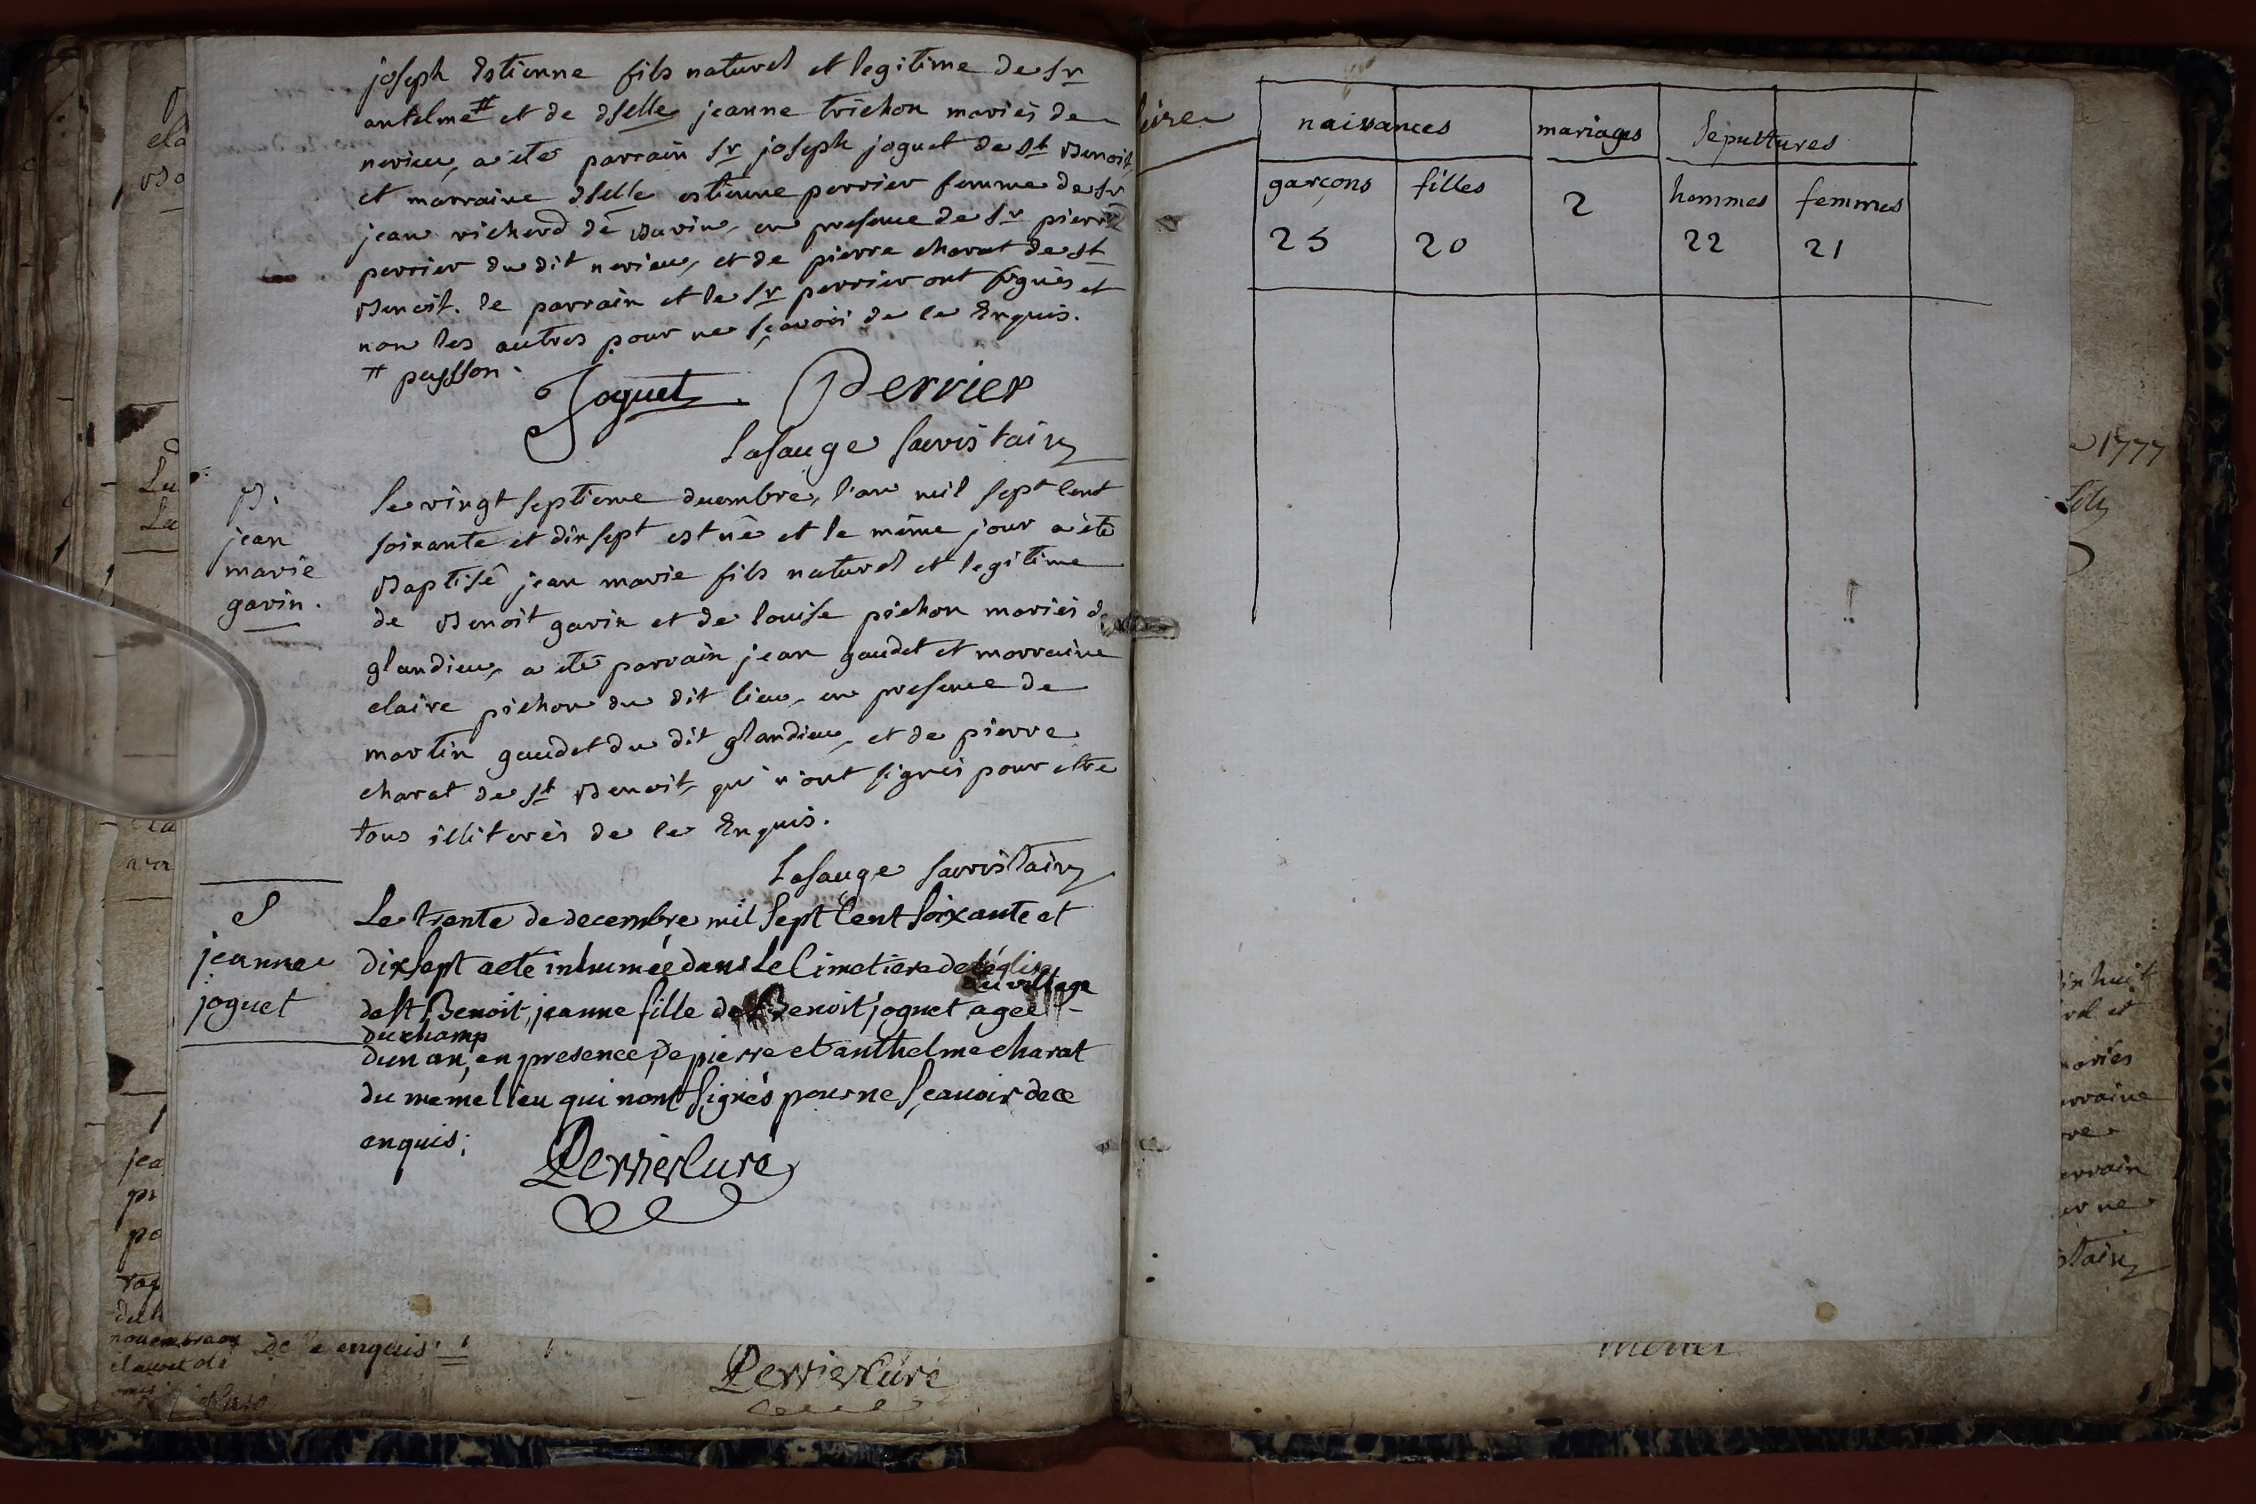 joseph Estienne fils naturel et legitime de Sr
antelme # et de dselle jeanne trichon mariés de
nerieu, a été parrain Sr joseph joguet de St Benoit,
et marraine dselle estienne perrier femme de Sr
jean richerd de, en presence de Sr pierre
perrier du dit nerieu, et de pierre charat de St
Benoit. le parrain et le Sr perrier ont signés et
non les autres pour ne sçavoir de ce Enquis.
# pusson.
Joguet. Perrier
Lasauge sacristain
B.
jean
marie
gavin.
Le vingt septieme decembre, l'an mil sept cent
soixante et dix sept est né et le même jour a été
Baptisé jean marie fils naturel et legitime
de Benoit gavin et de louise pichon mariés de
glandieu, a été parrain jean gaudet et marraine
claire pichon du dit lieu, en presence de
martin gaudet du dit glandieu, et de pierre
charat de St Benoit, qui n'ont signés pour etre
tous illiterés de ce Enquis.
Lasauge sacristain
S
jeanne
joguet
Le trente de decembre mil Sept Cent Soixante et
dix Sept a eté inhumée dans Le Cimetiere de léglise
du village
de St Benoit, jeanne fille de Benoit joguet agée
du champ
dun an, en presence de pierre et anthelme charat
du méme lieu qui nont Signés pour ne Sçauoir de ce
enquis;
Perrier Curé
de ce enquis
Perrier Curé
naissances mariages Sépultures
garçons filles 2 hommes femmes
25 20 22 21
1777